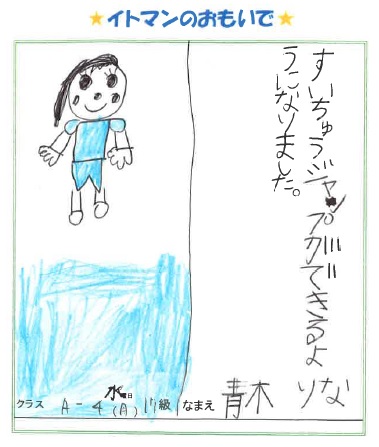 ★イトマンのおもいで★
すいちゅうジャンプができるよ
うになりました。
クラス A-4 水曜日 (A) 17級 なまえ 青木 りな